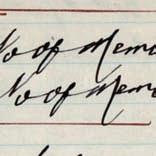 No of Memo
No of Memo